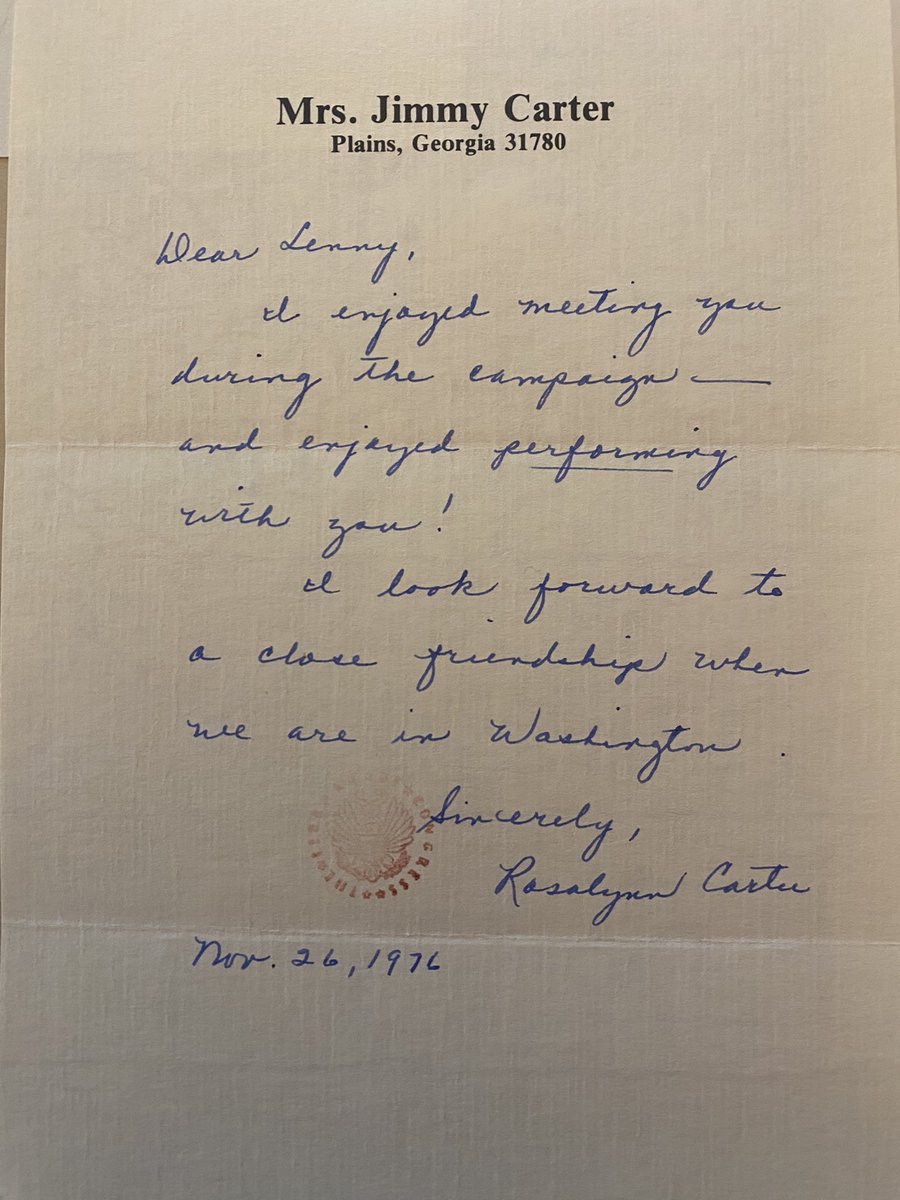 Mrs. Jimmy Carter
Plains, Georgia 31780
Dear Lenny,
I enjoyed meeting you
during the campaign —
and enjoyed performing
with you!
I look forward to
a close friendship when
we are in Washington.
Sincerely,
Rosalynn Carter
Nov. 26, 1976
CONGRESS